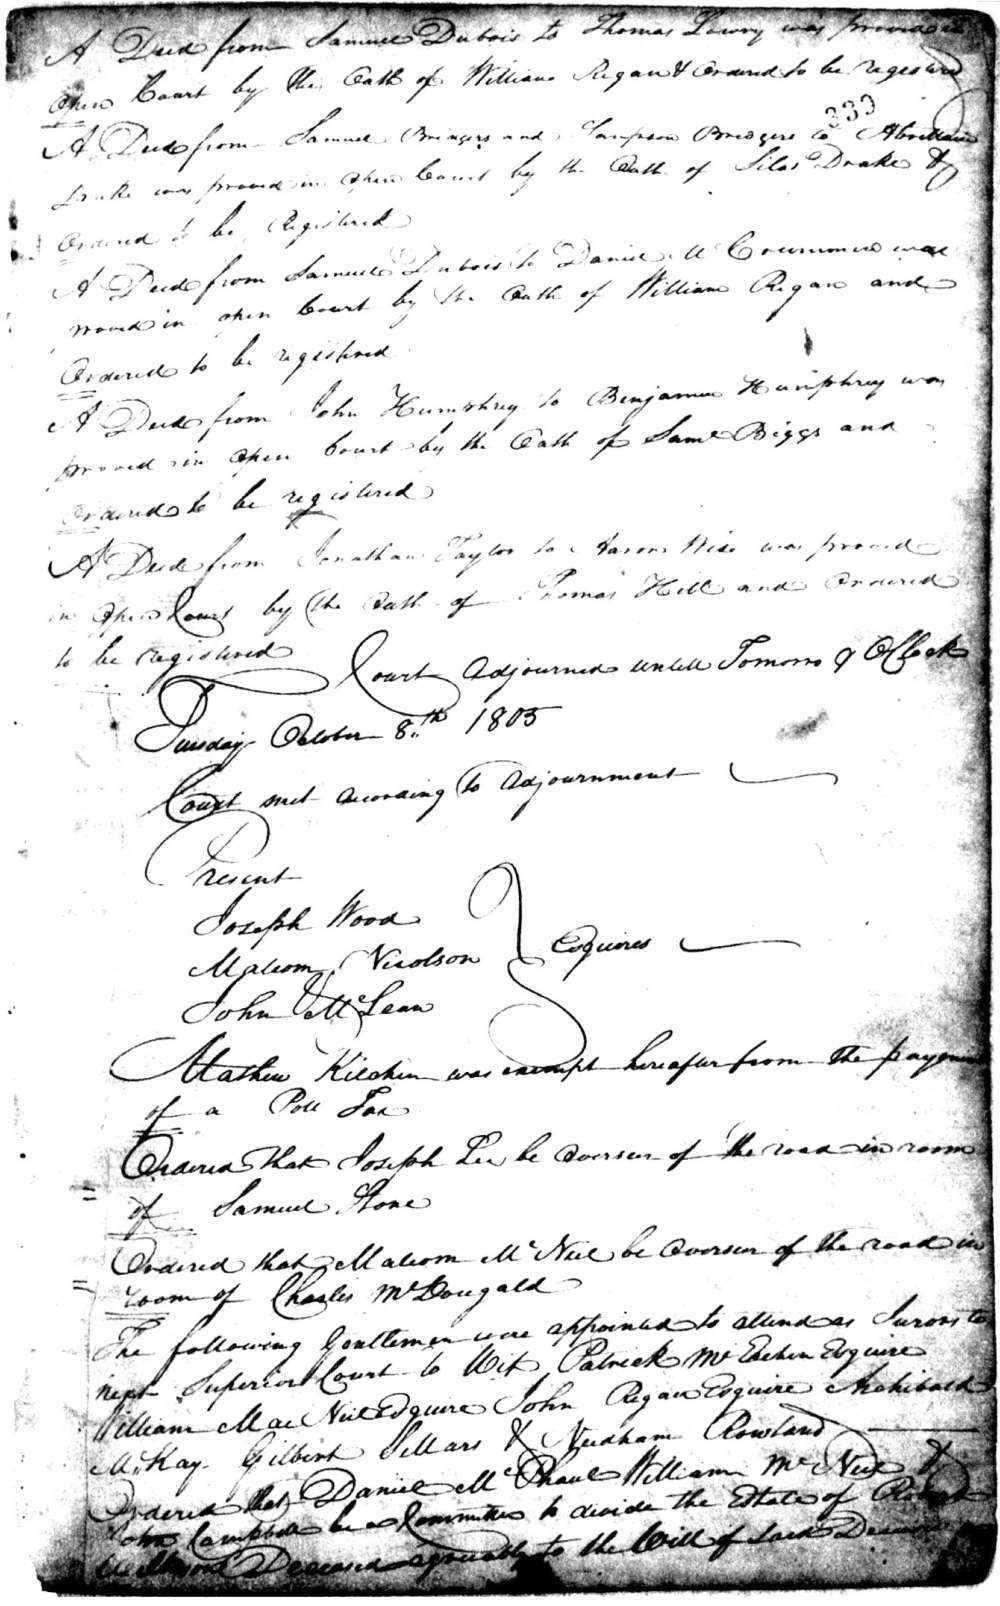 A Deed from Samuel Dubois to Thomas Lowry was proved in
open Court by the Oath of William Regan & Ordered to be registered
333
A Deed from Samuel Bridgers and Sampson Bridgers to Abraham
Drake was proved in open Court by the Oath of Silas Drake &
Ordered to be Registered
A Deed from Samuel Dubois to Daniel Mc Crummen was
proved in open Court by the Oath of William Regan and
Ordered to be registered
A Deed from John Humphrey to Benjamin Humphrey was
proved in open Court by the Oath of Saml Biggs and
Ordered to be registered
A Deed from Jonathan Taylor to Aaron Wise was proved
in open Court by the Oath of Thomas Hill and Ordered
to be registered
Court Adjourned untill Tomorro 9 OClock
Tuesday October 8th 1805
Court met according to Adjournment
Present
Joseph Wood
Malcom Nicolson Esquires
John McLean
Mathew Kitchin was exempt hereafter from the payment
of a Poll Tax
Ordered that Joseph Lee be overseer of the road in room
of Samuel Stone
Ordered that Malcom Mc Neil be overseer of the road in
room of Charles McDougald
The following Gentlemen were appointed to attend as Jurors to
next Superior Court to Wit Patrick Mc Eachin Esquire
William Mac Neil Esquire John Regan Esquire Archibald
McKay Gilbert Sellars & Needham Rowland
Ordered that Daniel McPhaul William Mc Neil &
John Campbell be a Committee to divide the Estate of
Deceased agreeably to the Will of said Deceased